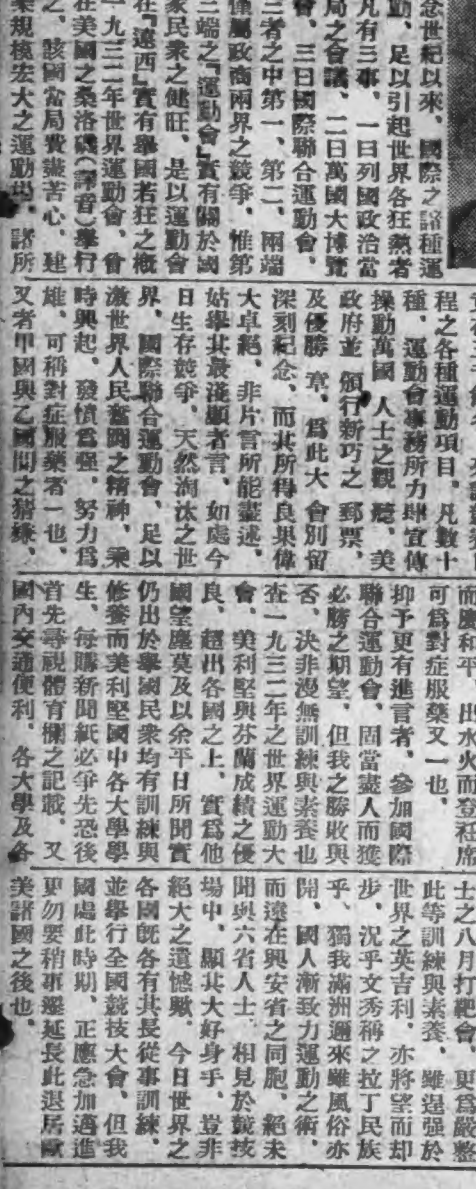 念世紀以來、國際之諸種運
動、足以引起世界各狂熱者
凡有三事、一曰列國政治當
局之會議、二曰萬國大博覽
會、三曰國際聯合運動會、
三者之中第一、第二、兩端
僅屬政商兩界之競爭、惟第
三端之『運動會』實有關於國
家民衆之健旺、是以運動會
在『遠西』實有舉國若狂之概
一九三二年世界運動會、會
在美國之桑洛磯(譯音)舉行
之、該國當局費盡苦心、建
築規模宏大之運動場、諸所
程之各種運動項目、凡數十
種、運動會事務所力肆宣傳
操動萬國 人士之觀 聽、美
政府並 頒行新巧之 郵票、
及優勝 章、爲此大 會別留
深刻紀念、而其所得良果偉
大卓絕、非片言所能盡述、
姑舉其最淺顯者言、如處今
日生存競爭、天然淘汰之世
界、國際聯合運動會、足以
激世界人民奮鬪之精神、乘
時興起、發憤爲强、努力爲
雄、可稱對症服藥者一也、
又者甲國與乙國間之猜嫌、
而應和平、出水火而登衽席
可爲對症服藥又一也、
抑予更有進言者、參加國際
聯合運動會、固當盡人而獲
必勝之期望、但我之勝敗與
否、決非漫無訓練與素養也
查一九三二年之世界運動大
會、美利堅與芬蘭成績之優
良、超出各國之上、實爲他
國望塵莫及以余平日所聞實
仍出於舉國民衆均有訓練與
修養而美利堅國中各大學學
生、每購新聞紙必爭先恐後
首先尋視體育欄之記載、又
國內交通便利、各大學及各
士之八月打靶會、更爲嚴整
此等訓練與素養、雖逞强於
世界之英吉利、亦將望而却
步、況乎文秀稱之拉丁民族
乎、獨我滿洲邇來雖風俗亦
開、國人漸致力運動之術、
而遠在興安省之同胞、絕未
聞與六省人士、相見於競技
場中、顯其大好身手、豈非
絕大之遺憾歟、今日世界之
各國既各有其長從事訓練、
並舉行全國競技大會、但我
國處此時期、正應急加邁進
更勿要稍事遲延長此退居歐
美諸國之後也、